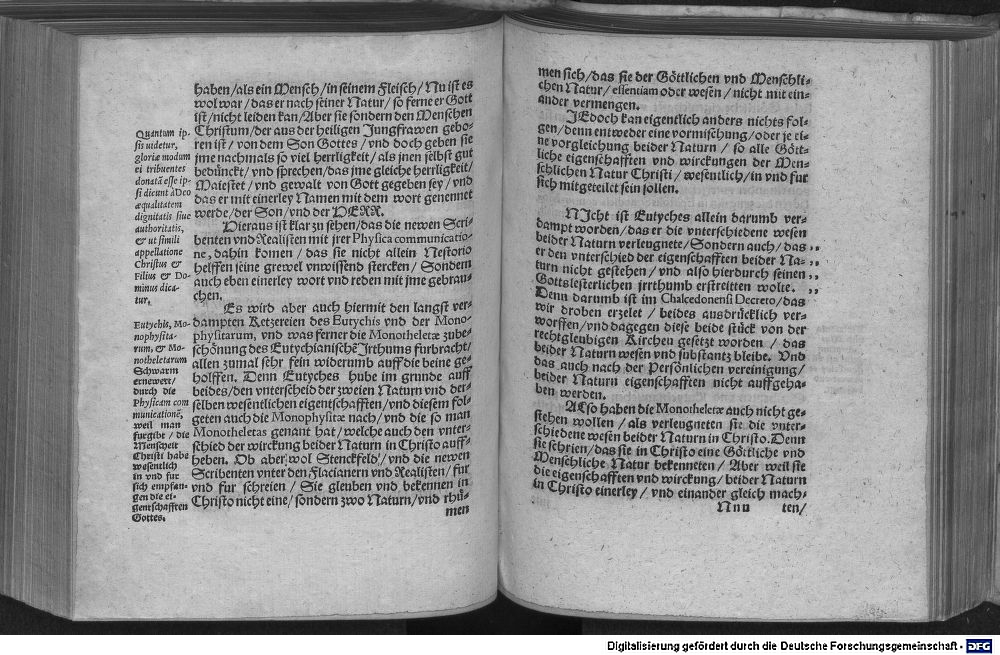 haben/als ein Mensch/in seinem Fleisch/Nu ist es
wol war/das er nach seiner Natur/so ferne er Gott
ist/nicht leiden kan/Aber sie sondern den Menschen
Christum/der aus der heiligen Jungfrawen gebo-
ren ist/von dem Son Gottes/vnd doch geben sie
jme nachmals so viel herrligkeit/als jnen selbst gut
bedünckt/vnd sprechen/das jme gleiche herrligkeit/
Maiestet/vnd gewalt von Gott gegeben sey/vnd
das er mit einerley Namen mit dem wort genennet
werde/der Son/vnd der HERR.
Hieraus ist klar zu sehen/das die newen Scri-
benten vnd Realisten mit jrer Physica communicatio-
ne, dahin komen/das sie nicht allein Nestorio
helffen seine grewel vnwissend stercken/Sondern
auch eben einerley wort vnd reden mit jme gebrau-
chen.
Es wird aber auch hiermit den langst ver-
dampten Ketzereien des Eutychis vnd der Mono-
physitarum, vnd was ferner die Monotheletæ zube-
schönung des Eutychianische Irthums furbracht/
allen zumal sehr fein widerumb auff die beine ge-
holffen. Denn Eutyches hube im grunde auff
beides/den vnterscheid der zweien Naturn vnd der-
selben wesentlichen eigentschafften/vnd diesem fol-
geten auch die Monophysitæ nach/vnd die so man
Monotheletas genant hat/welche auch den vnter-
schied der wirckung beider Naturn in Christo auff-
heben. Ob aber wol Stenckfeld/vnd die newen
Scribenten vnter den Flacianern vnd Realisten/fur
vnd fur schreien/Sie gleuben vnd bekennen in
Christo nicht eine/sondern zwo Naturn/vnd rhü-
men
Quantum ip-
sis uidetur,
gloriæ modum
ei tribuentes
donatā esse ip-
si dicunt à Deo
æqualitatem
dignitatis siue
authoritatis,
& ut simili
appellatione
Christus &
Filius & Do-
minus dica-
tur.
Eutychis, Mo-
nophysita-
rum, & Mo-
notheletarum
Schwarm
ernewert/
durch die
Physicam com
municationē,
weil man
furgibt/die
Menscheit
Christi habe
wesentlich
in vnd fur
sich empfan-
gen die ei-
gentschafften
Gottes.
men sich/das sie der Göttlichen vnd Menschli-
chen Natur/essentiam oder wesen/nicht mit ein-
ander vermengen.
JEdoch kan eigentlich anders nichts fol-
gen/denn entweder eine vormischung/oder je ei-
ne vorgleichung beider Naturn/so alle Gött-
liche eigenschafften vnd wirckungen der Men-
schlichen Natur Christi/wesentlich/in vnd fur
sich mitgeteilet sein sollen.
NIcht ist Eutyches allein darumb ver-
dampt worden/das er die vnterschiedene wesen
beider Naturn verleugnete/Sondern auch/das ,,
er den vnterschied der eigenschafften beider Na- ,,
turn nicht gestehen/vnd also hierdurch seinen ,,
Gottslesterlichen jrrthumb erstreitten wolte. ,,
Denn darumb ist im Chalcedonensi Decreto/das
wir droben erzelet/beides ausdrücklich ver-
worffen/vnd dagegen diese beide stück von der
rechtgleubigen Kirchen gesetzt worden/das
beider Naturn wesen vnd substantz bleibe. Vnd
das auch nach der Persönlichen vereinigung/
beider Naturn eigenschafften nicht auffgeha-
ben werden.
ALso haben die Monotheletæ auch nicht ge-
stehen wollen/als verleugneten sie die vnter-
schiedene wesen beider Naturn in Christo. Denn
sie schrien/das sie in Christo eine Göttliche vnd
Menschliche Natur bekenneten/Aber weil sie
die eigenschafften vnd wirckung/beider Naturn
in Christo einerley/vnd einander gleich mach-
Nnu ten/
Digitalisierung gefördert durch die Deutsche Forschungsgemeinschaft - DFG